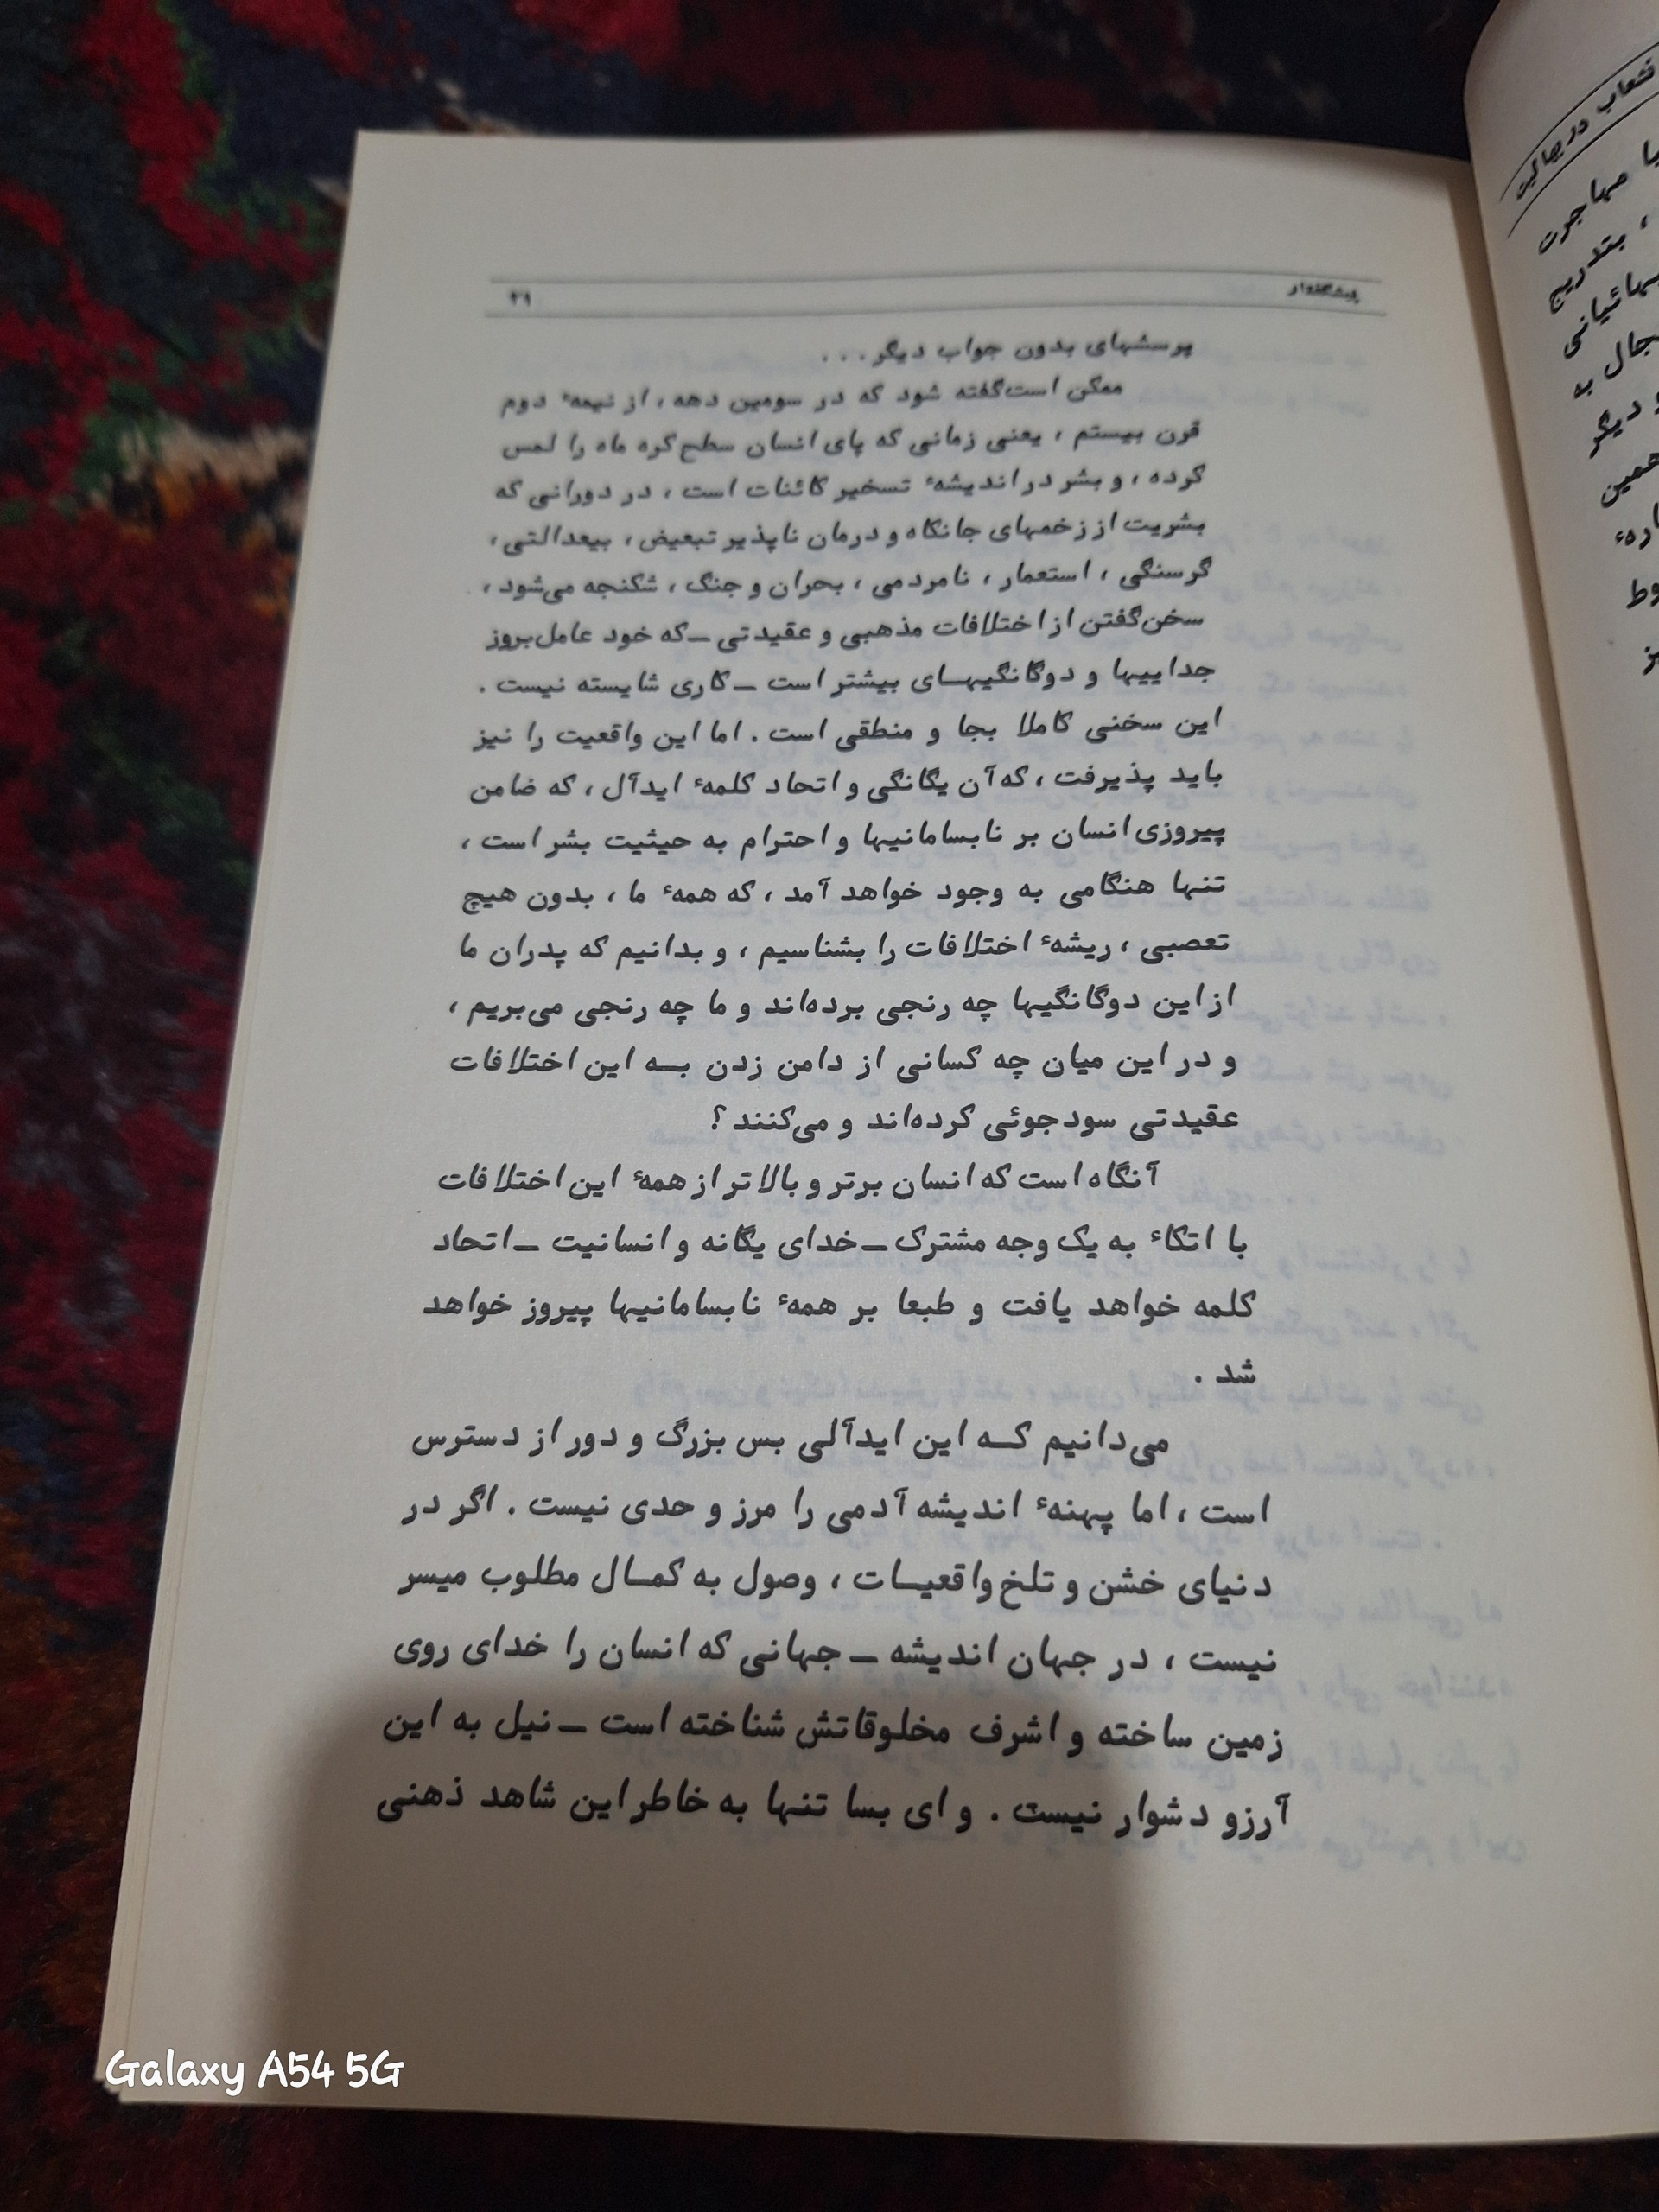 پیشگفتار ۳۱
پرسشهای بدون جواب دیگر . . .
ممکن است گفته شود که در سومین دهه ، از نیمهٔ دوم
قرن بیستم ، یعنی زمانی که پای انسان سطح کره ماه را لمس
کرده ، و بشر در اندیشهٔ تسخیر کائنات است ، در دورانی که
بشریت از زخمهای جانکاه و درمان ناپذیر تبعیض ، بیعدالتی ،
گرسنگی ، استعمار ، نامردمی ، بحران و جنگ ، شکنجه می‌شود ،
سخن گفتن از اختلافات مذهبی و عقیدتی ـ که خود عامل بروز
جداییها و دوگانگیهـای بیشتر است ـ کاری شایسته نیست .
این سخنی کاملا بجا و منطقی است . اما این واقعیت را نیز
باید پذیرفت ، که آن یگانگی و اتحاد کلمهٔ ایدآل ، که ضامن
پیروزی انسان بر نابسامانیها و احترام به حیثیت بشر است ،
تنها هنگامی به وجود خواهد آمد ، که همهٔ ما ، بدون هیچ
تعصبی ، ریشهٔ اختلافات را بشناسیم ، و بدانیم که پدران ما
از این دوگانگیها چه رنجی برده‌اند و ما چه رنجی می‌بریم ،
و در این میان چه کسانی از دامن زدن بـه این اختلافات
عقیدتی سودجوئی کرده‌اند و می‌کنند ؟
آنگاه است که انسان برتر و بالاتر از همهٔ این اختلافات
با اتکاٴ به یک وجه مشترک ـ خدای یگانه و انسانیت ـ اتحاد
کلمه خواهد یافت و طبعا بر همهٔ نابسامانیها پیروز خواهد
شد .
می‌دانیم کـه این ایدآلی بس بزرگ و دور از دسترس
است ، اما پهنهٔ اندیشه آدمی را مرز و حدی نیست . اگر در
دنیای خشن و تلخ واقعیـات ، وصول به کمـال مطلوب میسر
نیست ، در جهان اندیشه ـ جهانی که انسان را خدای روی
زمین ساخته و اشرف مخلوقاتش شناخته است ـ نیل به این
آرزو دشوار نیست . و ای بسا تنها به خاطر این شاهد ذهنی
مهاجرت
، بتدریج
دیگر
Galaxy A54 5G